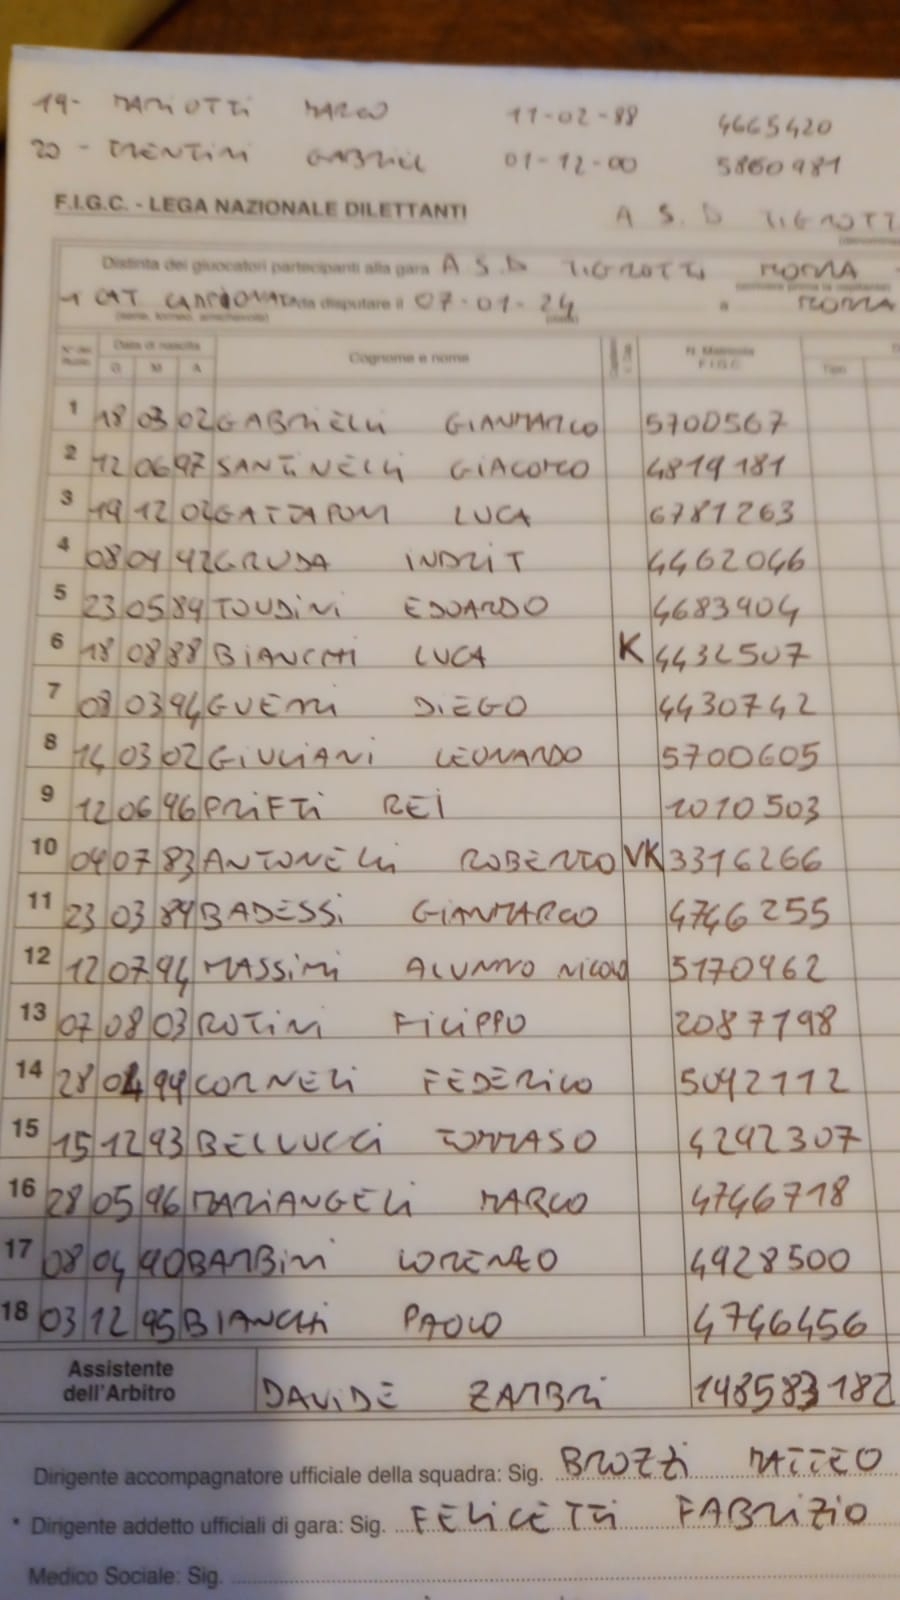 19- MARIOTTI MARCO 11-02-88 4665420
20 - TRENTINI GABRIEL 01-12-00 5860981
F.I.G.C. - LEGA NAZIONALE DILETTANTI A S.D TIGROTTI
Distinta dei giuocatori partecipanti alla gara A S.D TIGROTTI ROMA
1 CAT CAMPIONATO da disputare il 07-01-24 a ROMA
Data di nascita Cognome e nome N. Matricola
G M A F.I.G.C. Tipo
1 18 03 02 GABRIELLI GIANMARCO 5700567
2 12 06 97 SANTINELLI GIACOMO 4819181
3 19 12 02 GATTAPONI LUCA 6781263
4 08 04 92 GRUDA INDRIT 4462046
5 23 05 89 TOUDINI EDOARDO 4683904
6 18 08 88 BIANCHI LUCA K 4432507
7 08 03 94 GUERRI DIEGO 4430742
8 14 03 02 GIULIANI LEONARDO 5700605
9 12 06 96 PRIFTI REI 1010503
10 04 07 83 ANTONELLI ROBERTO VK 3316266
11 23 03 89 BADESSI GIANMARCO 4746255
12 12 07 94 MASSIMI ALUNNO NICOLO 5170962
13 07 08 03 ROTINI FILIPPO 2087198
14 28 04 94 CORNELI FEDERICO 5092112
15 15 12 93 BELLUCCI TOMMASO 4292307
16 28 05 96 MARIANGELI MARCO 4746718
17 08 04 90 BARBINI LORENZO 4928500
18 03 12 95 BIANCHI PAOLO 4746456
Assistente
dell'Arbitro DAVIDE ZAMBRI 148583182
Dirigente accompagnatore ufficiale della squadra: Sig. BROZZI MATTEO
* Dirigente addetto ufficiali di gara: Sig. FELICETTI FABRIZIO
Medico Sociale: Sig.